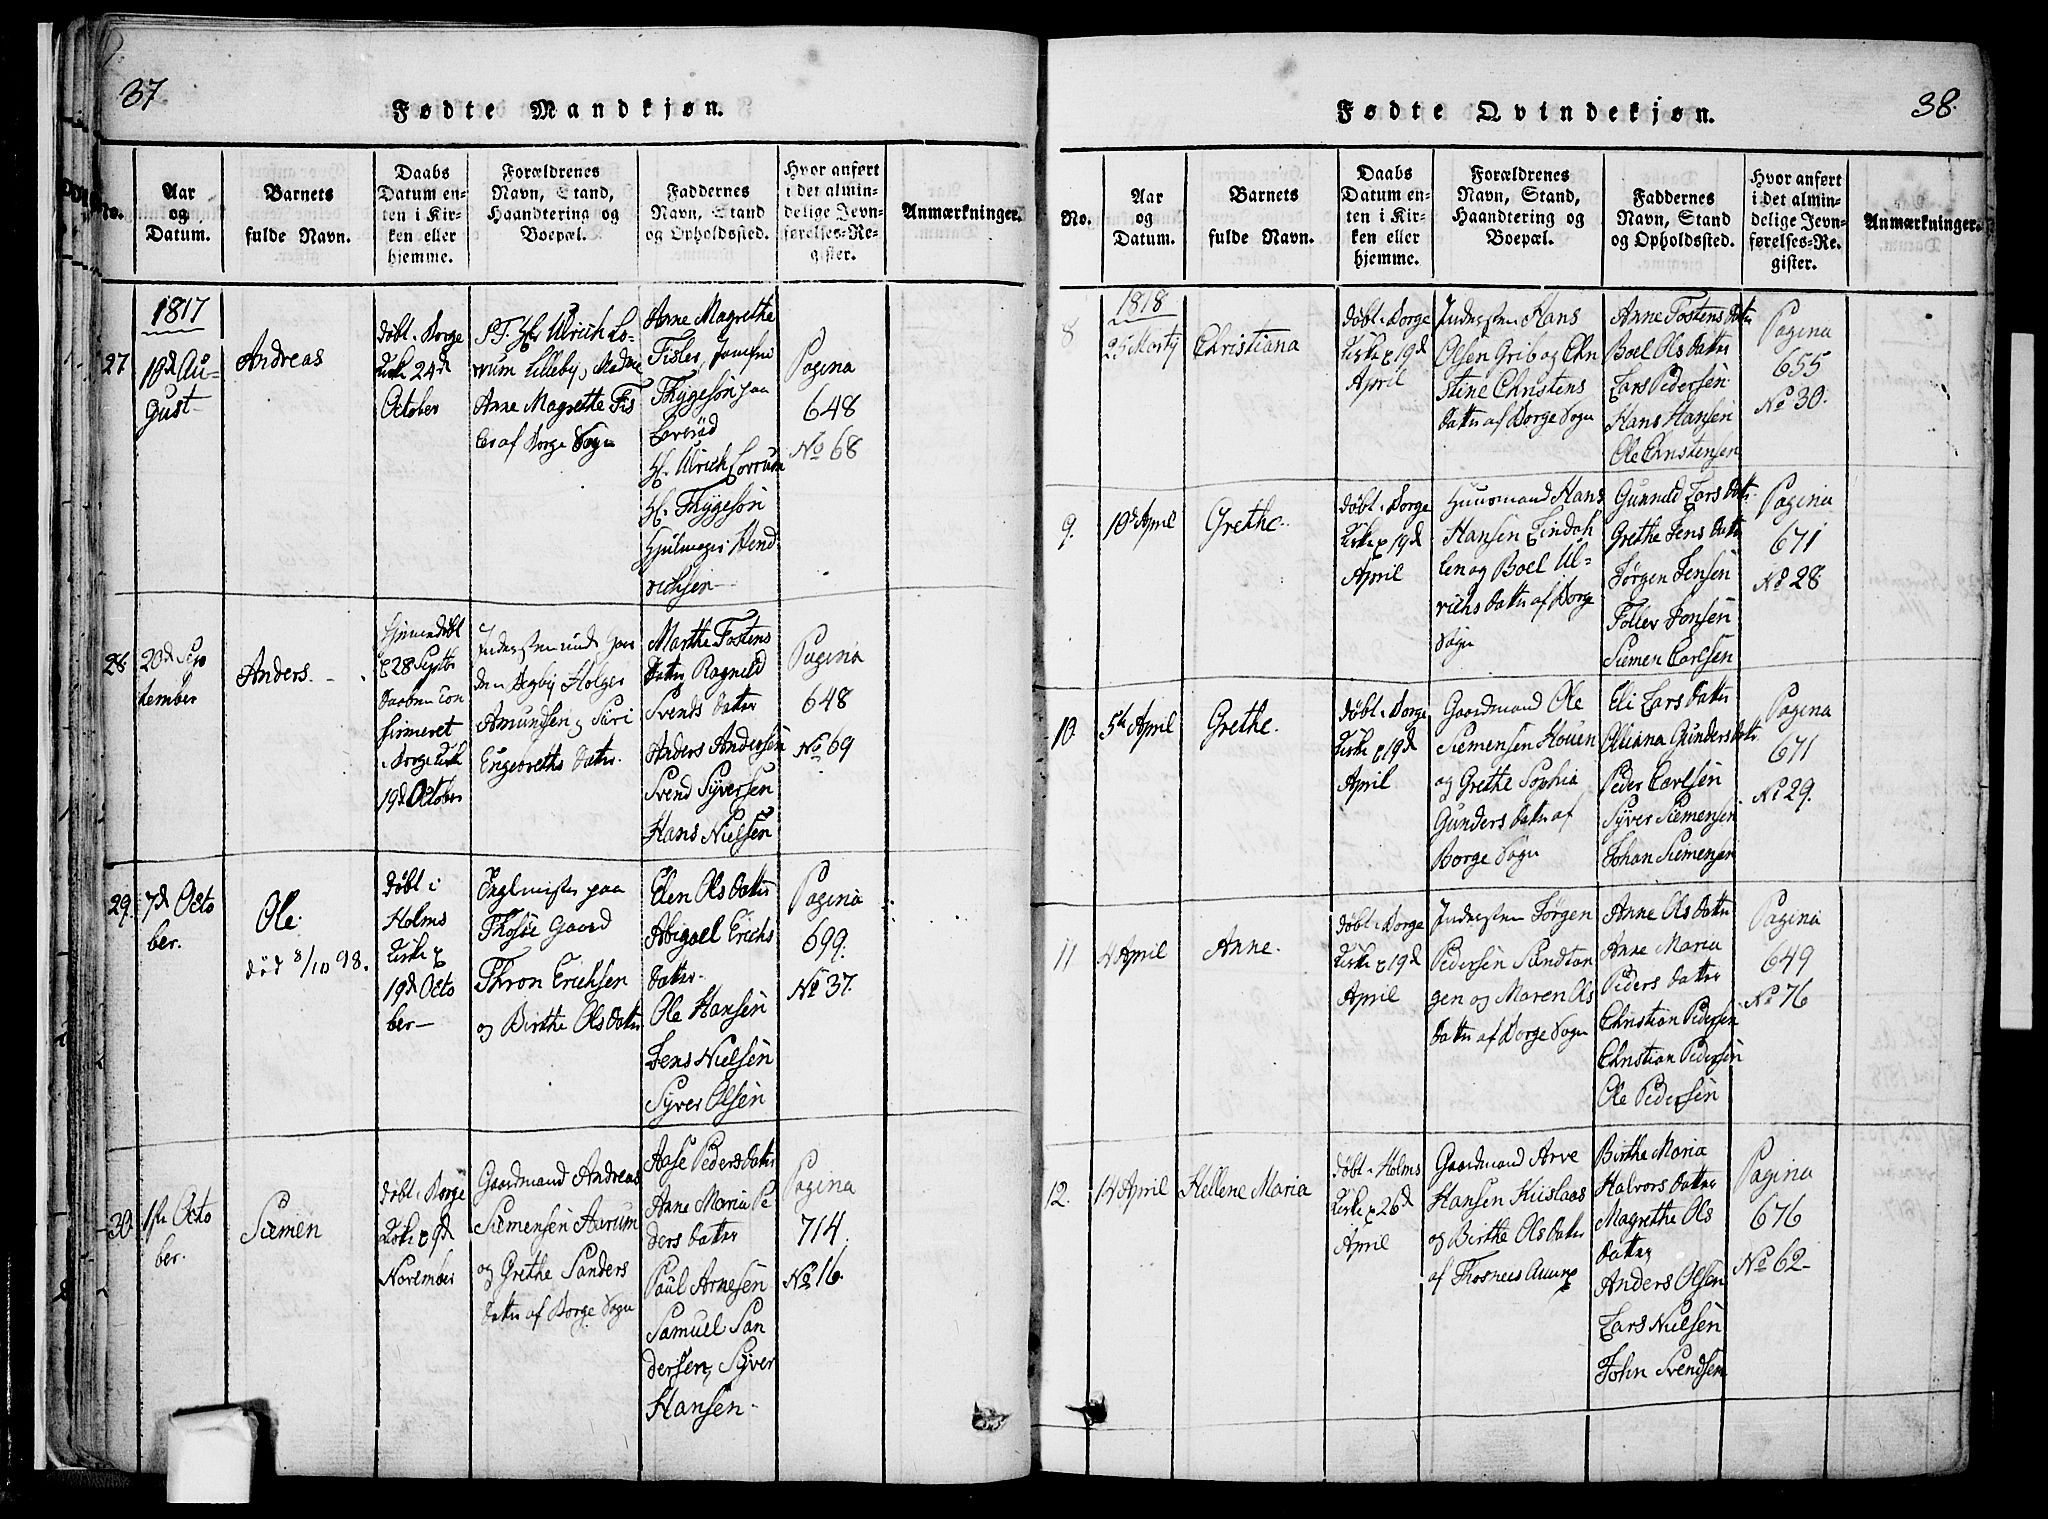 37
Fødte Mandkjøn.
No.
Aar
og
Datum.
Barnets
fulde Navn.
Daabs
Datum en-
ten i Kir-
ken eller
hjemme.
Forældrenes
Navn, Stand,
Haandtering og
Boepæl.
Faddernes
Navn, Stand
og Opholdssted.
Hvor anført
i det almin-
delige Jevn-
førelses-Re-
gister.
Anmærkninger.
1817
27
19d Au-
gust
Andreas
døbt i Borge
Kirke 24d
October
Hr Ulrich Lo-
rum Lilleby, Madme
Anne Magrethe Fis
ler af Borge Sogn
Anne Magrethe
Fisler, Jomfru
Thygeson paa
Hr. Ulrich Lorrum
Hr. Thygeson
Hjulmager Hend
richsen
Pagina
648
No 68
28
20d Sep
tember
Anders
Hjemmedøbt
28 Septbr
Daaben Con
firmeret
i Borge Kirke
19d October
Holger
Amundsen og Siri
Engebreths Datter.
Marthe Tostens
Datter Ragnild
Svends Datter
Anders Andersen
Svend Syversen
Hans Nielsen
Pagina
648
No 69
29.
7d Octo
ber.
Ole
død 8/10 98.
døbt i
Holms
Kirke
19d Octo
ber
Teglmester paa
Thosøe Gaard
Thron Erichsen
og Birthe Ols Datter
Elen Ols Datter
Abigael Erichs
Datter
Ole Hansen
Jens Nielsen
Syver Olsen
Pagina
699.
No 37.
30
1ste Octo
ber.
Siemen
døbt i Borge
Kirke 9d
November
Gaardmand Andreas
Siemensen Aarum
og Grethe Sanders
Datter af Borge Sogn
Aase Peders Datter
Anne Maria Pe
ders Datter
Paul Arnesen
Samuel San
dersen, Syver
Hansen
Pagina
714.
No 16.
38.
Fødte Qvindekjøn.
No.
Aar
og
Datum.
Barnets
fulde Navn.
Daabs
Datum en-
ten i Kir-
ken eller
hjemme.
Forældrenes
Navn, Stand,
Haandtering og
Boepæl.
Faddernes
Navn, Stand
og Opholdssted.
Hvor anført
i det almin-
delige Jevn-
førelses-Re-
gister.
Anmærkninger.
1818
8
25 Martj
Christiana
døbt i Borge
Kirke 19d
April
Indersten Hans
Olsen Grib og Chri
stine Christens
Datter af Borge Sogn
Anne Tostens Datter
Boel Ols Datter
Lars Pedersen
Hans Hansen
Ole Christensen
Pagina
655
No 30.
9.
10d April
Grethe.
døbt i Borge
Kirke 19d
April
Huusmand Hans
Hansen Lindah
len og Boel Ul-
richs Datter af Borge
Sogn
Gunnild Lars Datter
Grethe Jens Datter
Jørgen Jensen
Tollev Jonsen
Siemen Carlsen
Pagina
671
No 28
10.
5te April
Grethe.
døbt i Borge
Kirke 19d
April
Gaardmand Ole
Siemensen Houen
og Grethe Sophia
Gunders Datter af
Borge Sogn
Eli Lars Datter
Oliana Gunders Datter
Peder Carlsen
Syver Siemensen
Johan Siemensen
Pagina
671
No 29.
11
4 April
Anne.
døbt i Borge
Kirke 19d
April
Indersten Jørgen
Pedersen Sundtan
gen og Maren Ols
Datter af Borge Sogn
Anne Ols Datter
Anne Maria
Peders Datter
Christian Pedersen
Christian Pedersen
Ole Pedersen
Pagina
649
No 76
12.
14 April
Hellene Maria
døbt i Holms
Kirke 26d
April
Gaardmand Arve
Hansen
og Birthe Ols Datter
af
Birthe Maria
Halvors Datter
Magrethe Ols
Datter
Anders Olsen
Lars Nielsen
John Svendsen
Pagina
676
No 62